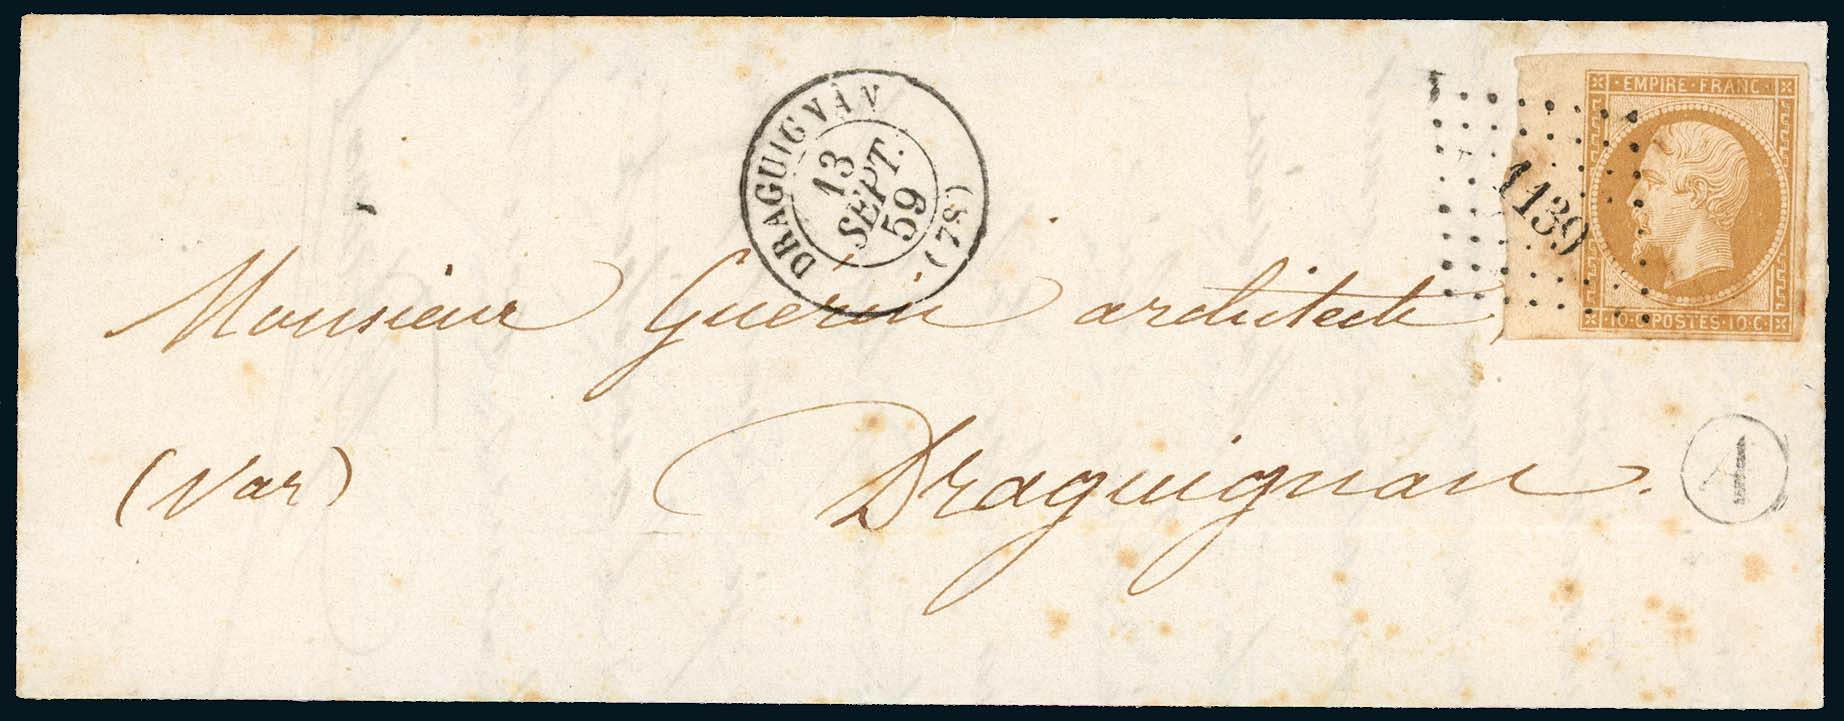 DRAGUIGNAN (78)
13
SEPT.
59
EMPIRE · FRANC
1139
10 · C · POSTES · 10 · C ·
Monsieur Guérin architecte
(Var) Draguignan.
A